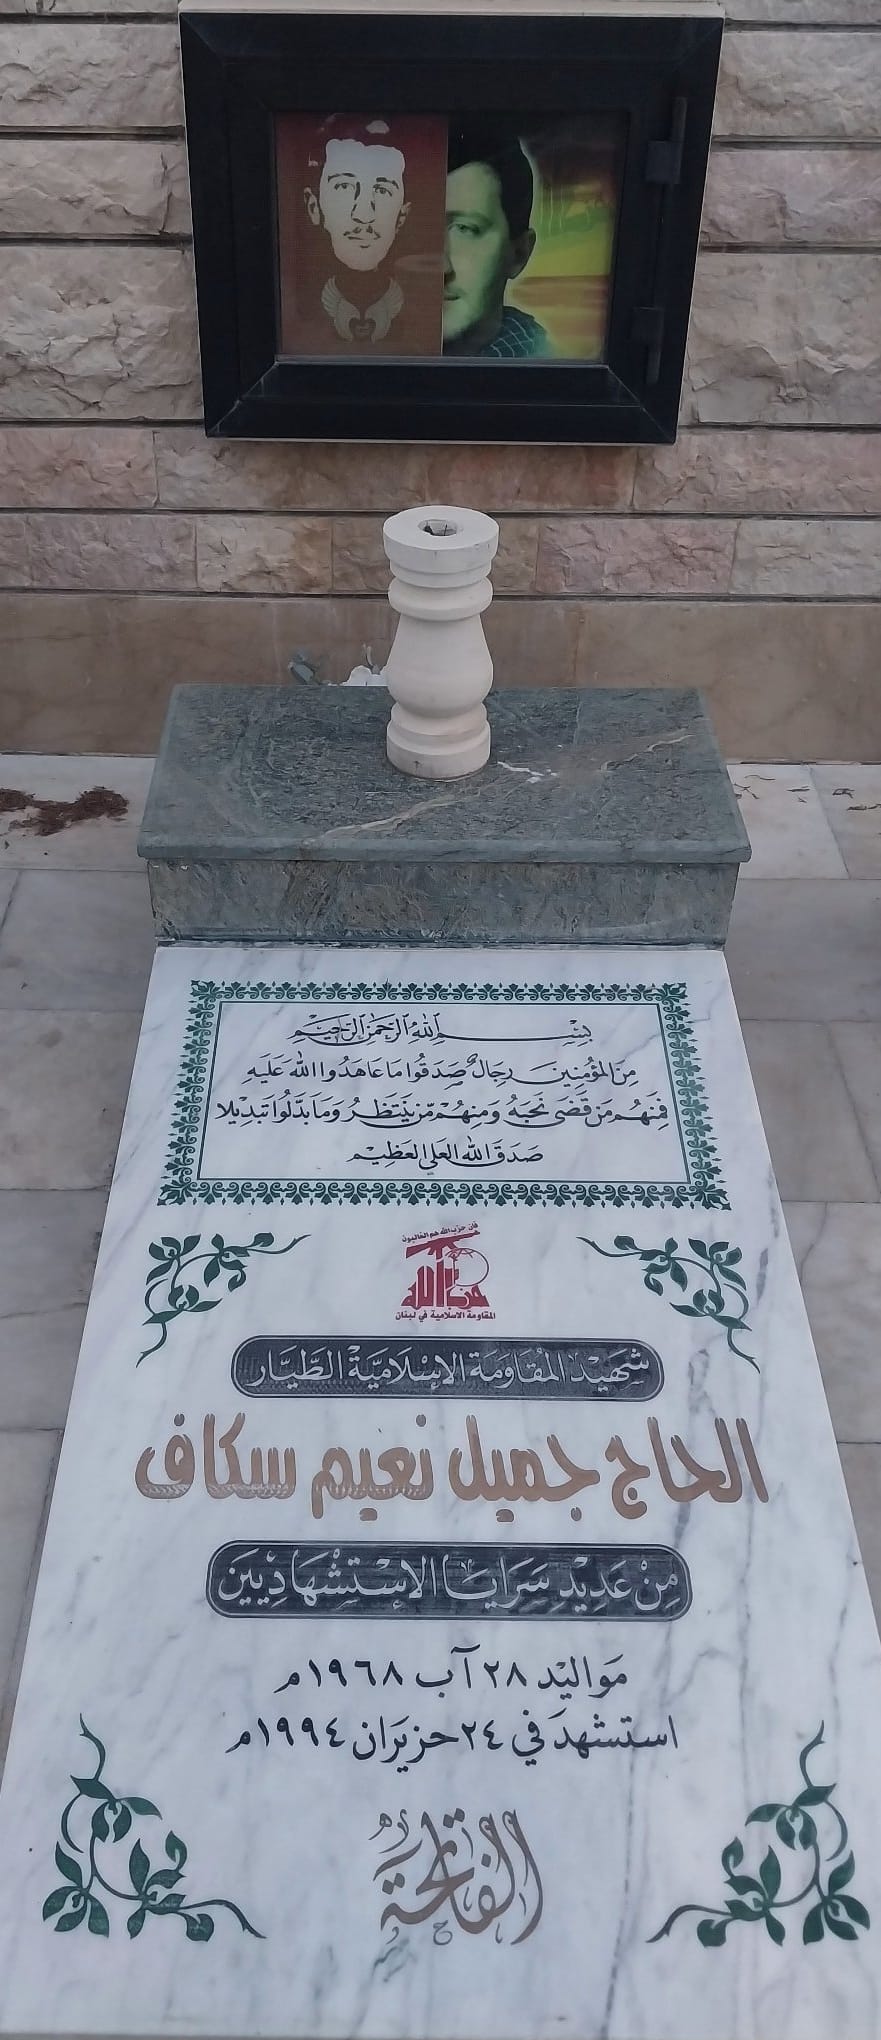 بِسْمِ اللهِ الرَّحْمٰنِ الرَّحِيْمِ
مِنَ المُؤْمِنِينَ رِجَالٌ صَدَقُوا مَا عَاهَدُوا اللهَ عَلَيْهِ
فَمِنْهُم مَن قَضَى نَحْبَهُ وَمِنْهُم مَّن يَنتَظِرُ وَمَا بَدَّلُوا تَبْدِيلا
صَدَقَ اللهُ العَلِيُ العَظِيْم
فإن حزب الله هم الغالبون
حزب الله
المقاومة الاسلامية في لبنان
شَهِيْد المُقَاوَمَة الإسْلَامِيَّة الطَّيَّار
الحاج جميل نعيم سكاف
مِنْ عَدِيْدِ سَرَايَا الاسْتِشْهَادِيّينَ
مَوَاليْد ٢٨ آب ١٩٦٨م
استشهدَ في ٢٤ حزيرَان ١٩٩٤م
الفاتحة